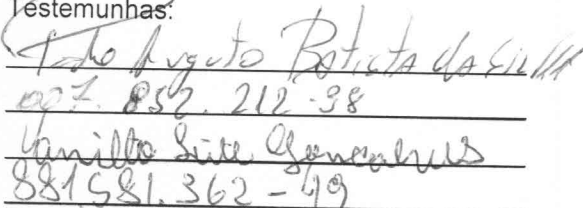 Testemunhas:
Augusto Batista da Silva
007.852.212-98
Vanillo Gonçalves
881581.362-49